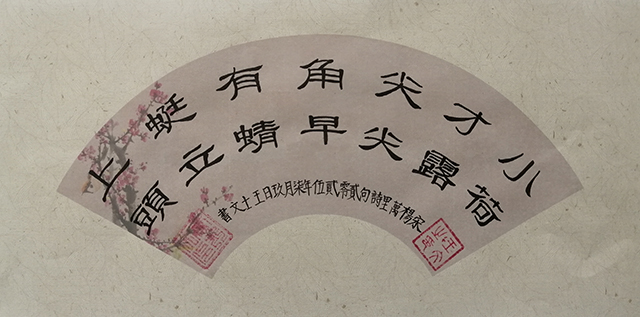 小荷
才露
尖尖
角早
有蜻
蜓立
上頭
宋楊萬里詩句貳零貳伍年柒月玖日王士文書